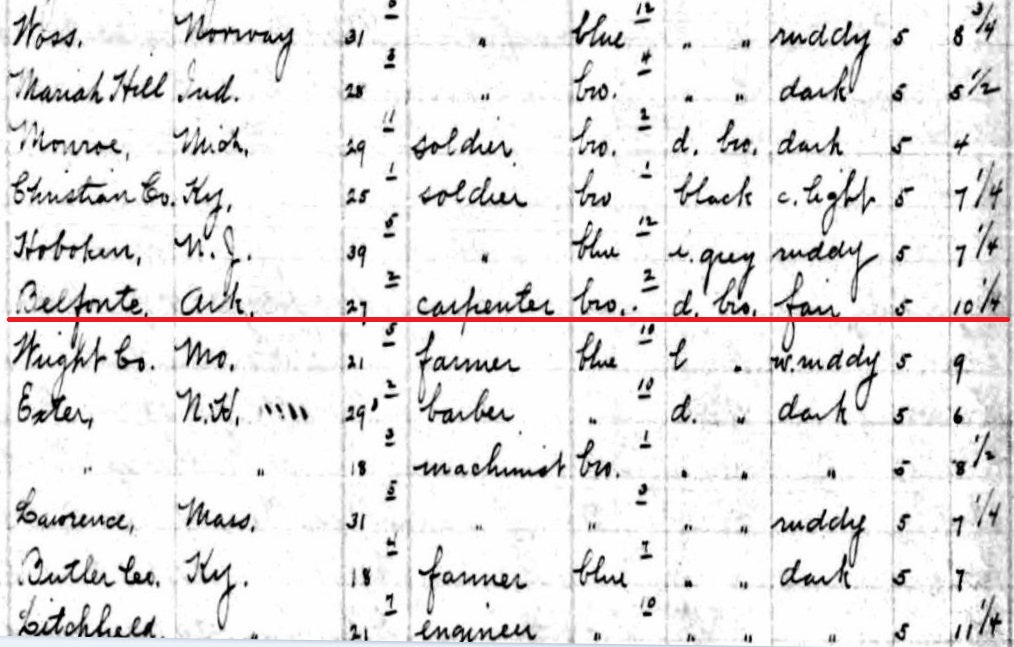 Woss, Norway 31 " blue 12 " " ruddy 5 8 3/4
Mariah Hill Ind. 28 " bro. 4 " " dark 5 5 1/2
Monroe, Mich. 29 11 soldier bro. 2 d. bro. dark 5 4
Christian Co. Ky. 25 1 soldier bro 1 black c. light 5 7 1/4
Hoboken, N. J. 39 5 " blue 12 i. grey ruddy 5 7 1/4
Belfonte, Ark. 27 2 carpenter bro. 2 d. bro. fair 5 10 1/4
Wright Co. Mo. 21 5 farmer blue 10 l " w. ruddy 5 9
Exter, N.H. """" 29 2 barber " 10 d. " dark 5 6
" " 18 3 machinist bro. 1 " " " 5 8 1/2
Lawrence, Mass. 31 5 " " 3 " " ruddy 5 7 1/4
Butler Co. Ky. 18 farmer blue 7 " " dark 5 7
Litchfield, " 21 7 engineer " 10 " " " 5 11 1/4